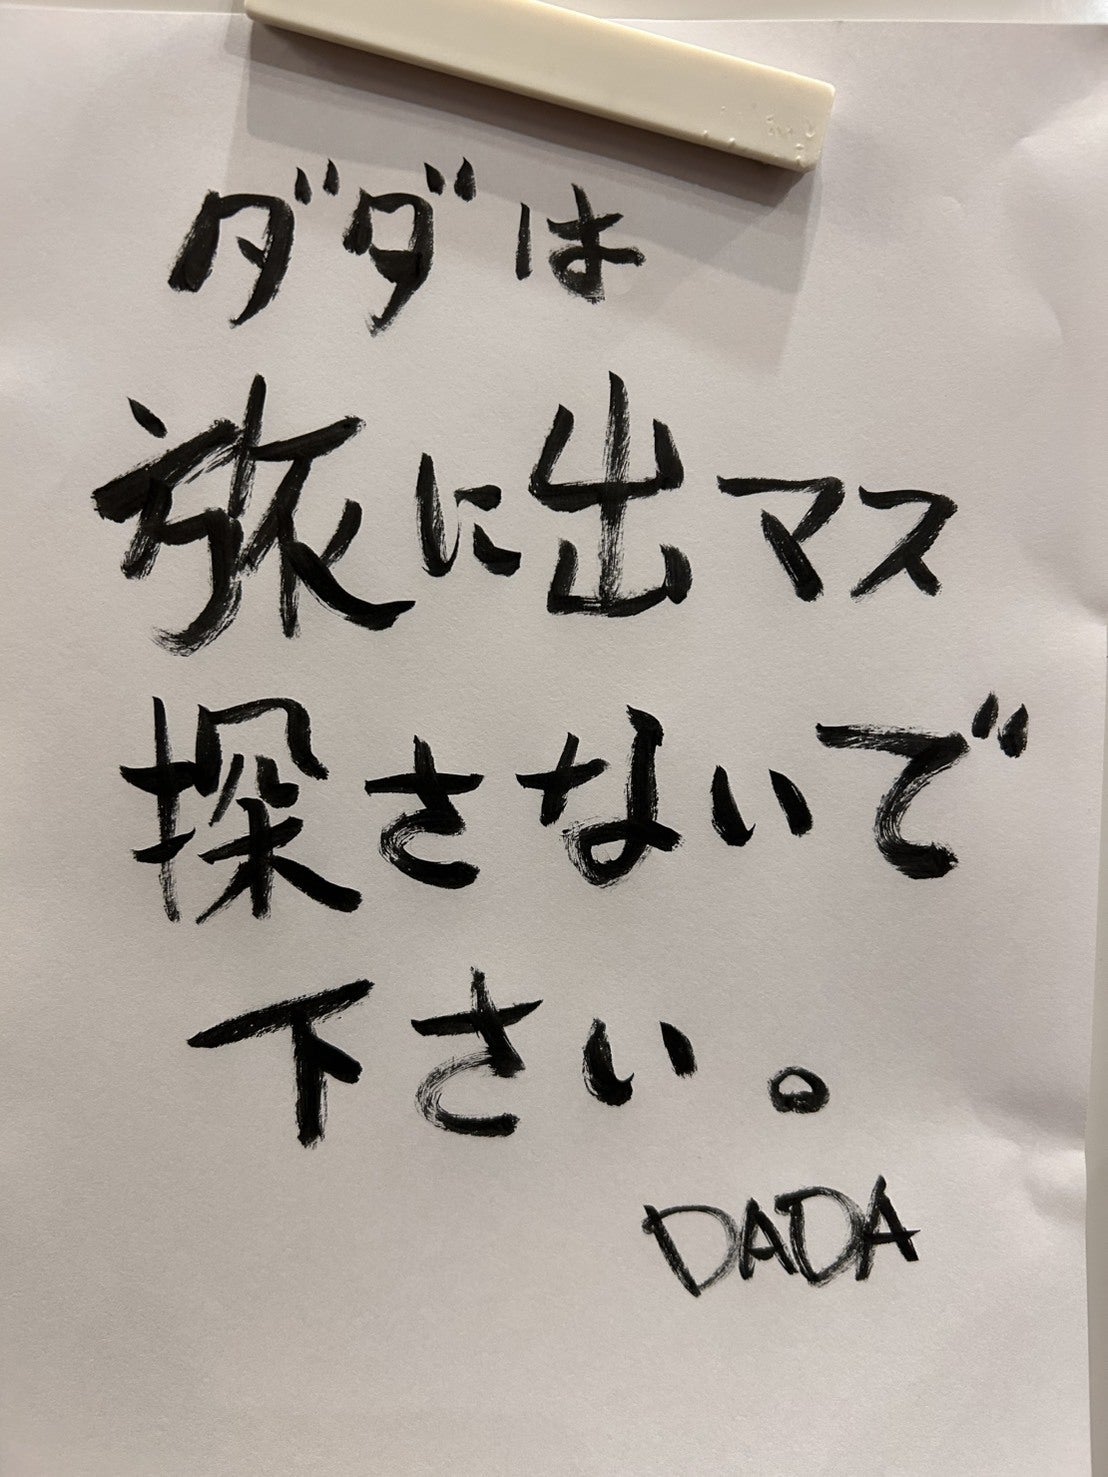 ダダは
旅に出マス
探さないで
下さい。
DADA